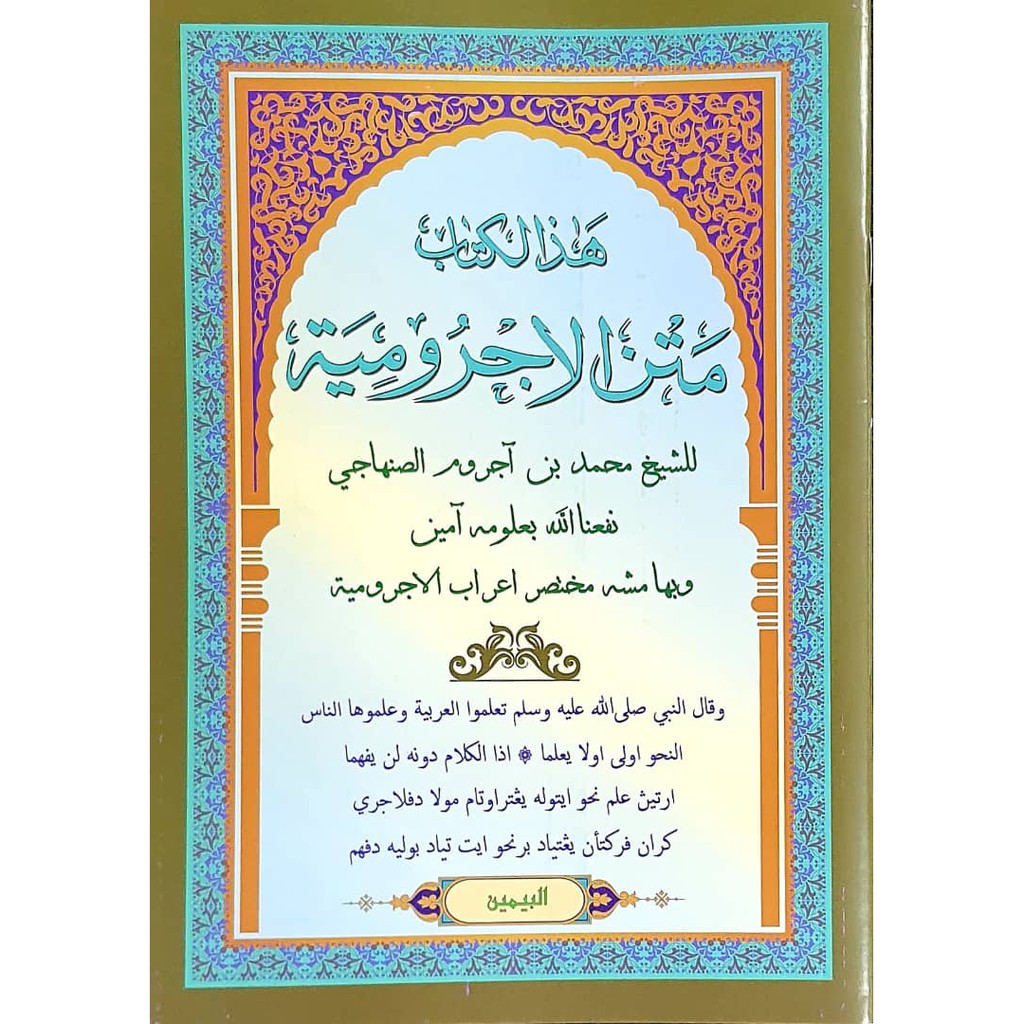 هَذَا الكتاب
مَتْنُ الاجْرُومِيَة
للشيخ محمد بن آجروم الصنهاجي
نفعنا الله بعلومه آمين
وبهامشه مختصر اعراب الاجرومية
وقال النبي صلى الله عليه وسلم تعلموا العربية وعلموها الناس
النحو اولى اولا يعلما ۞ اذا الكلام دونه لن يفهما
ارتيڽ علم نحو ايتوله يڠتراوتام مولا دفلاجري
كران فركتأن يڠتياد برنحو ايت تياد بوليه دفهم
البيمين